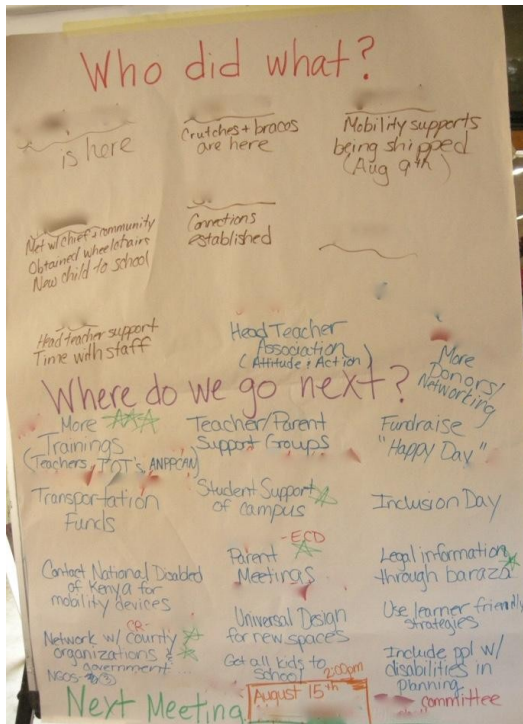 Who did what?
is here
Crutches + braces
are here
Mobility supports
being shipped
(Aug 9th)
Met w/ chief & community
Obtained wheelchairs
New child to school
Connections
established
Head teacher support
Time with staff
Head Teacher
Association
(Attitude & Action)
More
Donors/
Networking
Where do we go next?
More
Trainings
(Teachers, POT's, ANPPCAN)
Teacher/Parent
Support Groups
Fundraise
"Happy Day"
Transportation
Funds
Student Support
of campus
Inclusion Day
Contact National Disabled
of Kenya for
mobility devices
-ECD
Parent
Meetings
Legal information
through baraza
CR-
Network w/ county
organizations &
government
NGOs
Universal Design
for new spaces
Use learner friendly
strategies
Get all kids to
school
Include ppl w/
disabilities in
Planning
- committee
Next Meeting
August 15th
2:00pm